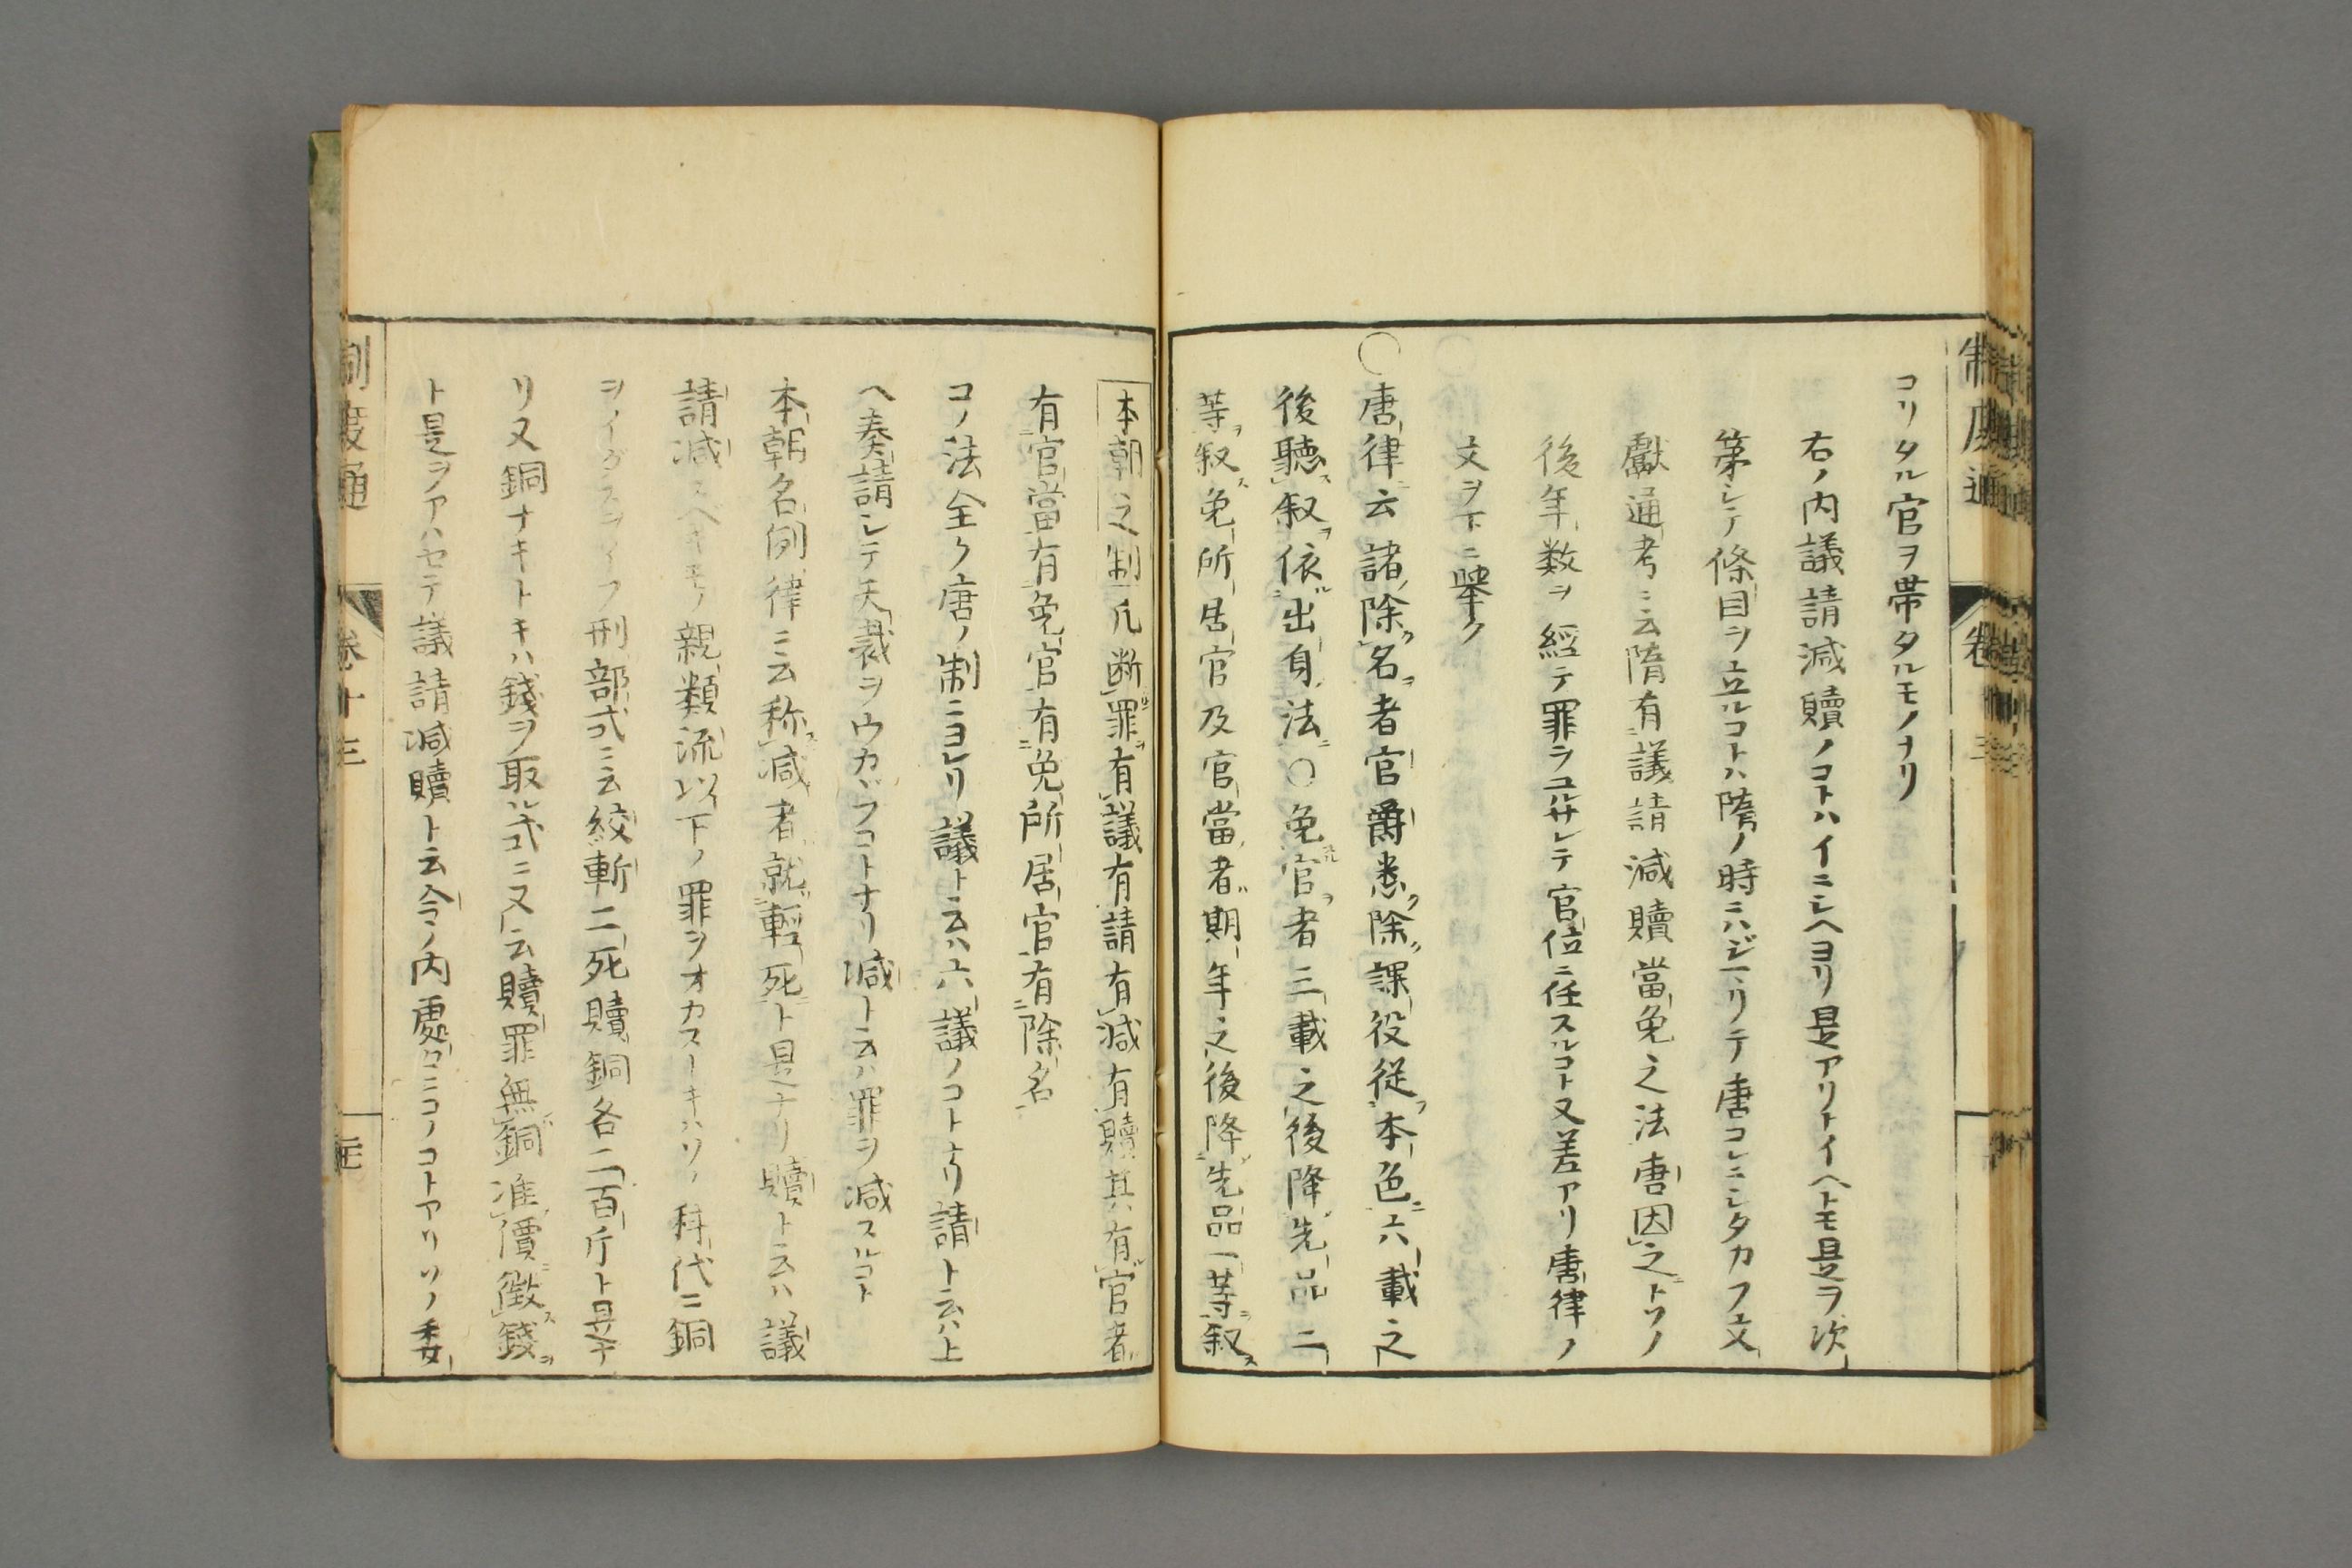 コリタル官ヲ帯タルモノナリ
右ノ内議請減贖ノコトハイニシヘヨリ是アリトイヘトモ是ヲ次
第シテ條目ヲ立ルコトハ隋ノ時ニハジマリテ唐コレニシタカフ文
獻通考ニ云隋有議請減贖當免之法唐因之トソノ
後年数ヲ經テ罪ヲユルサレテ官位ニ任スルコト又差アリ唐律ノ
文ヲ下ニ舉ク
○唐律云諸除名者官爵悉除課役従本色六載之
後聽叙依出身法○免官者三載之後降先品二
等叙免所居官及官當者期年之後降先品一等叙
本朝之制凡断罪有議有請有減有贖其有官者
有官當有免官有免所居官有除名
コノ法全ク唐ノ制ニヨレリ議ト云ハ六議ノコトナリ請ト云ハ上
ヘ奏請シテ天裁ヲウカヾフコトナリ減ト云ハ罪ヲ減スルコト
本朝名例律ニ云称減者就輕死ト是ナリ贖ト云ハ議
請減スヘキモノ親類流以下ノ罪ヲオカストキハソノ科代ニ銅
ヲイダスヲイフ刑部式ニ云絞斬二死贖銅各二百斤ト是ナ
リ又銅ナキトキハ錢ヲ取ル式ニ又云贖罪無銅准價徴錢
ト是ヲアハセテ議請減贖ト云令ノ内處々ニコノコトアリソノ委
制度通
卷十三